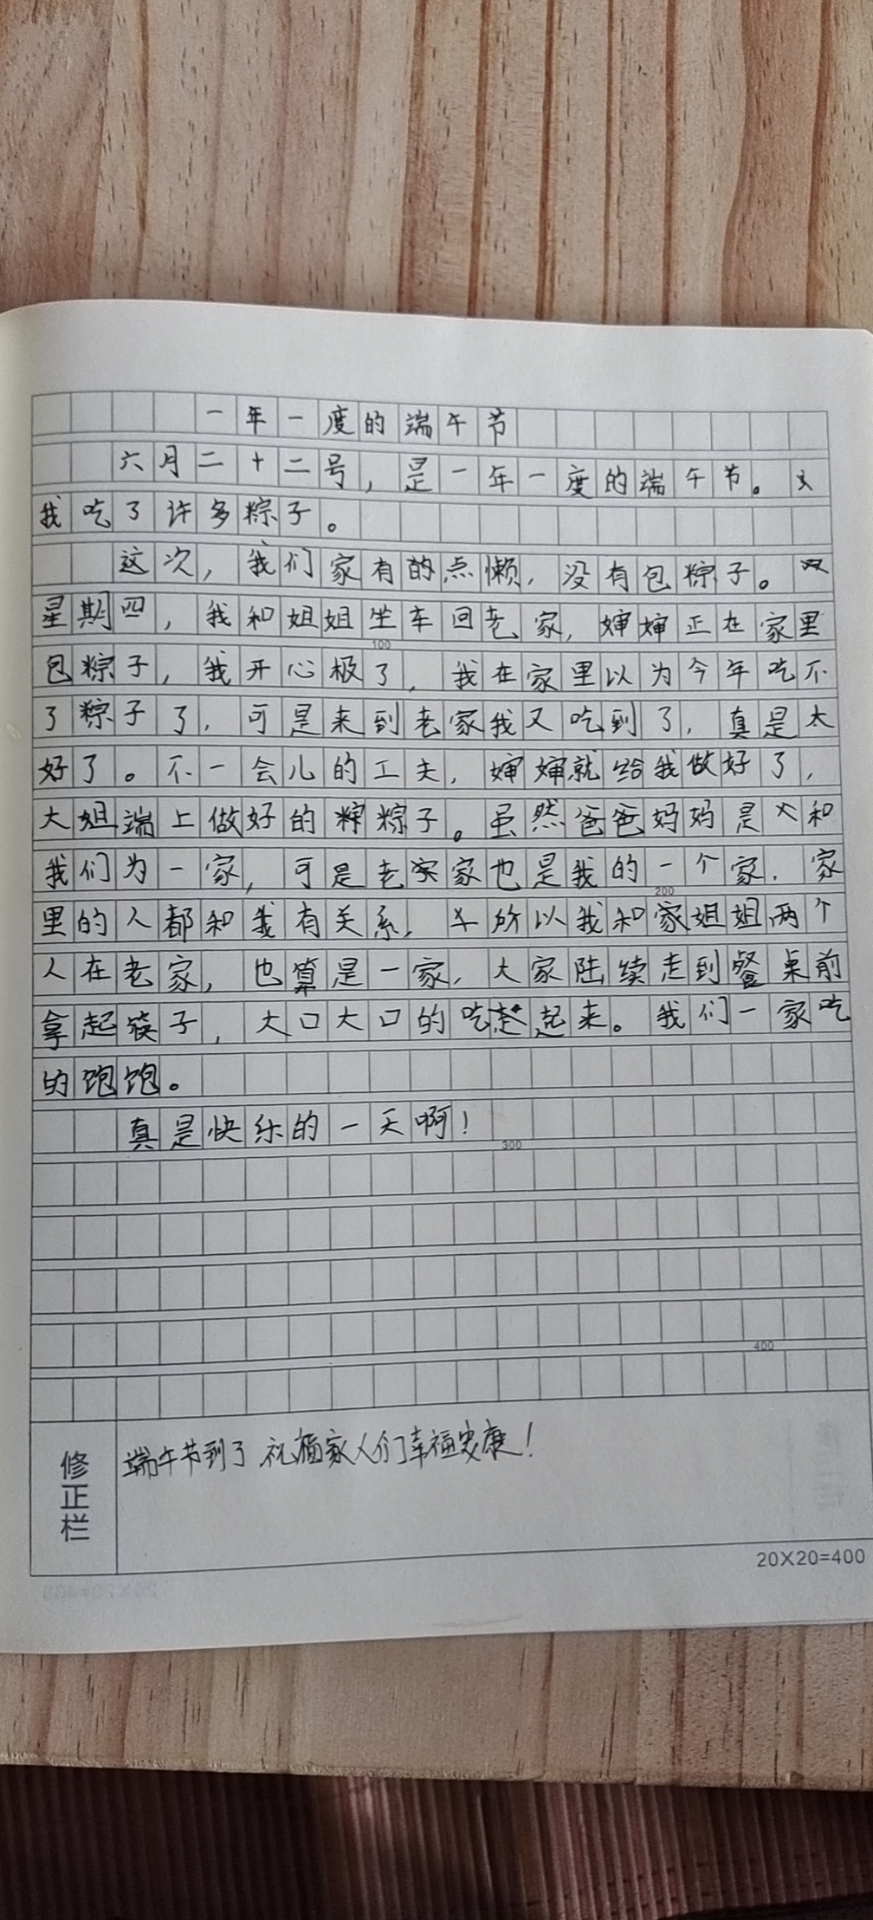 一年一度的端午节
六月二十二号，是一年一度的端午节。
我吃了许多粽子。
这次，我们家有的点懒，没有包粽子。
星期四，我和姐姐坐车回老家，婶婶正在家里
包粽子，我开心极了，我在家里以为今年吃不
100
了粽子了，可是来到老家我又吃到了，真是太
好了。不一会儿的工夫，婶婶就给我做好了，
大姐端上做好的粽子。虽然爸爸妈妈是和
我们为一家，可是老家也是我的一个家，家
200
里的人都和我有关系，所以我和家姐姐两个
人在老家，也算是一家，大家陆续走到餐桌前
拿起筷子，大口大口的吃起来。我们一家吃
的饱饱。
真是快乐的一天啊！
300
400
修正栏
端午节到了祝福家人们幸福安康！
20X20=400